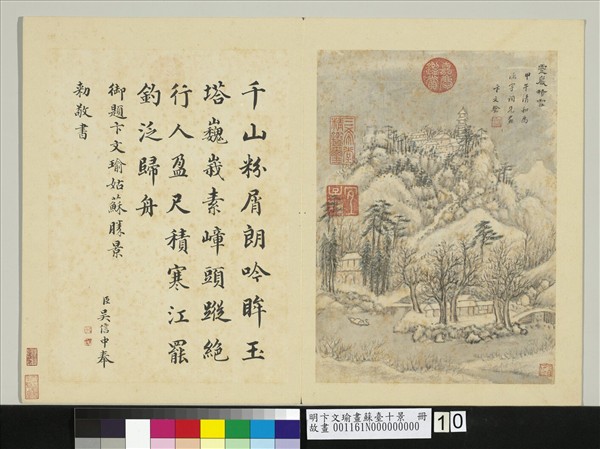 甲子清和為
千山粉屑朗吟眸玉
塔巍峩素嶂頭蹤絕
行人盈尺積寒江罷
釣泛歸舟
御題卞文瑜姑蘇勝景
臣吳信中奉
勅敬書
明卞文瑜畫蘇臺十景 冊
故畫 001161N000000000
10